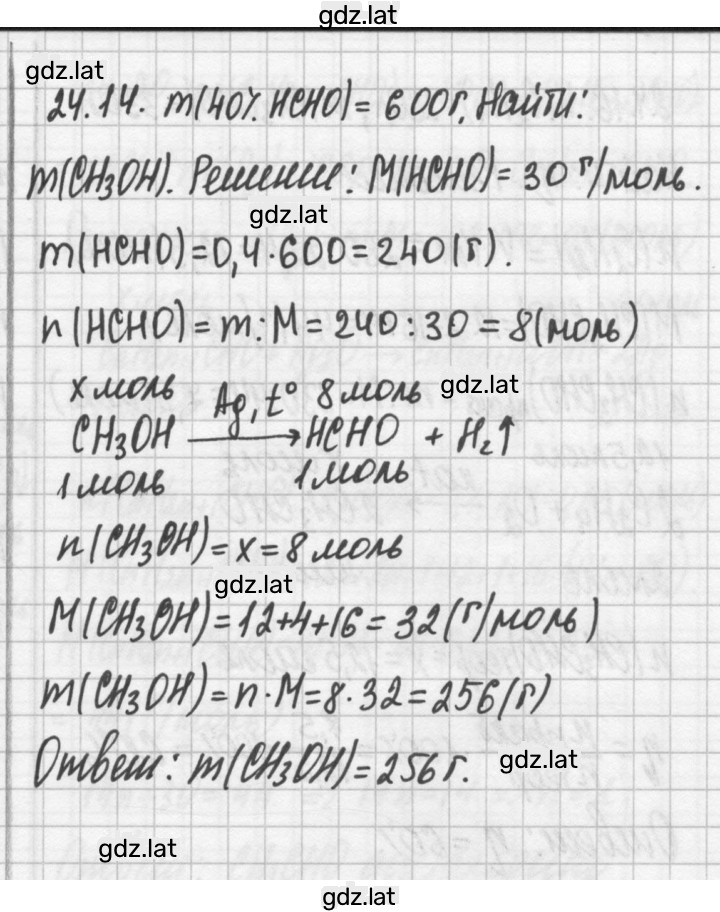 gdz.lat
gdz.lat
24.14. m(40% HCHO) = 600г. Найти:
m(CH₃OH). Решение: M(HCHO) = 30 г/моль.
gdz.lat
m(HCHO) = 0,4·600 = 240(г).
n(HCHO) = m:M = 240:30 = 8(моль)
x моль Ag, t° 8 моль gdz.lat
CH₃OH → HCHO + H₂↑
1 моль 1 моль
n(CH₃OH) = x = 8 моль
gdz.lat
M(CH₃OH) = 12+4+16 = 32(г/моль)
m(CH₃OH) = n·M = 8·32 = 256(г)
Ответ: m(CH₃OH) = 256г. gdz.lat
gdz.lat
gdz.lat